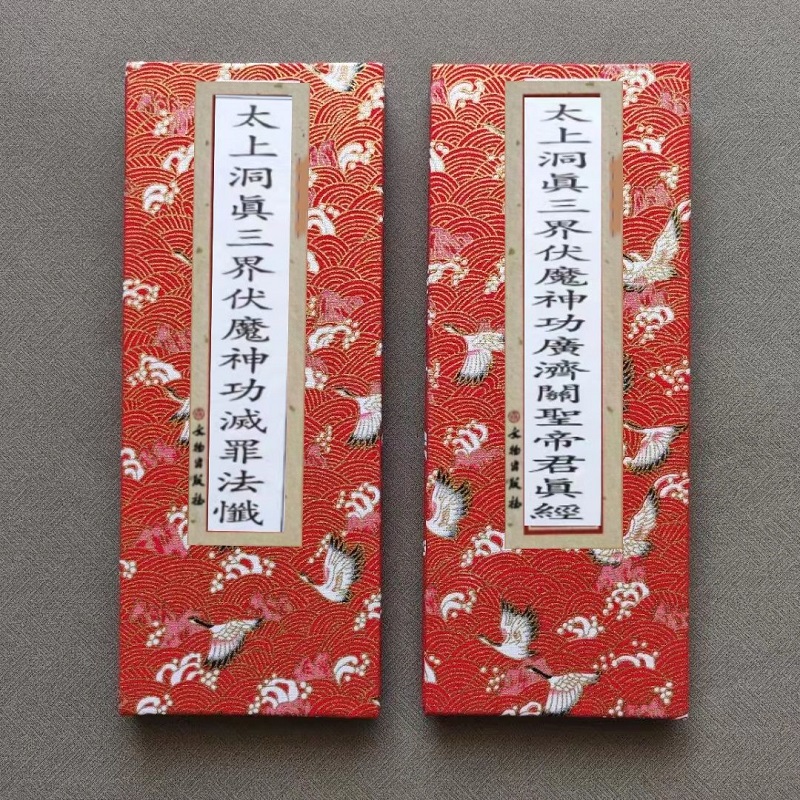 太上洞眞三界伏魔神功滅罪法懺
文物出版社
太上洞眞三界伏魔神功廣濟關聖帝君眞經
文物出版社